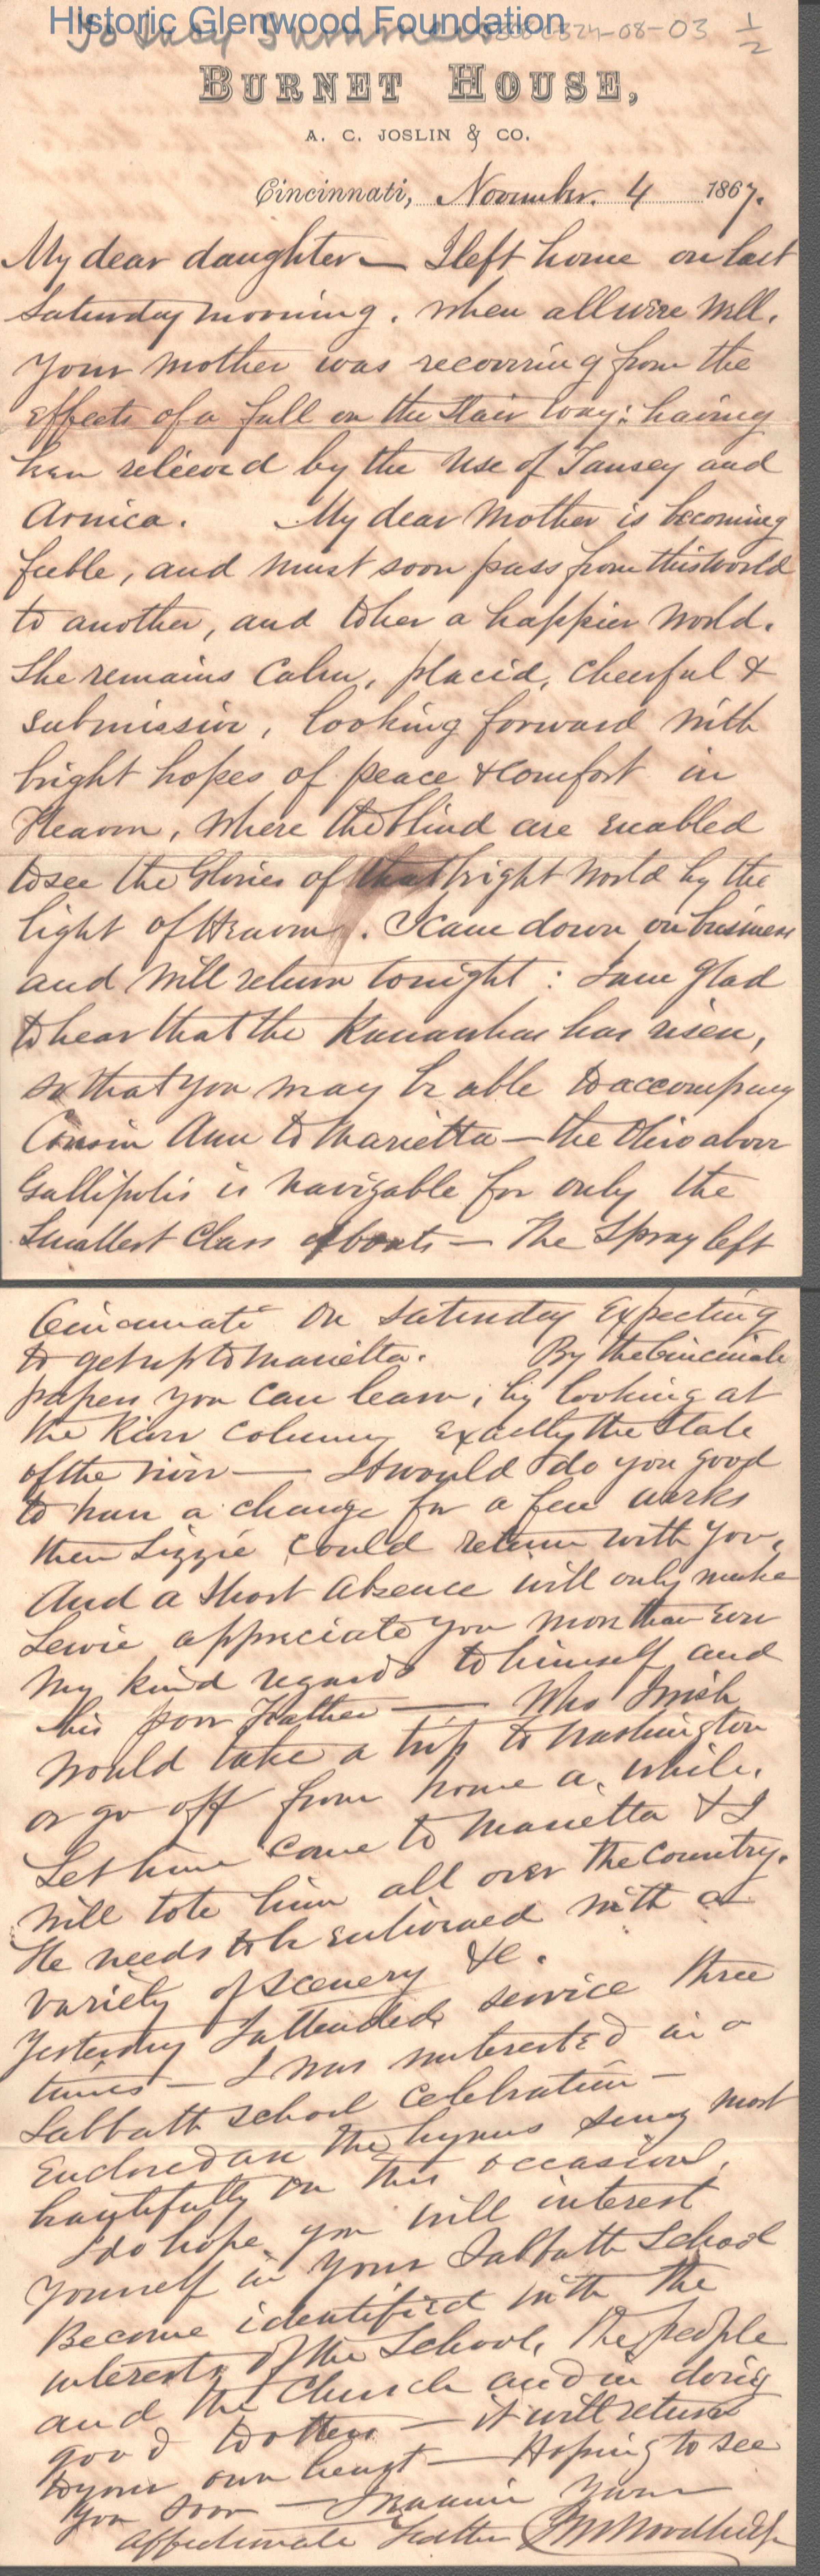 Historic Glenwood Foundation
To Lucy Summers 08-03 1/2
BURNET HOUSE,
A. C. JOSLIN & CO.
Cincinnati, November. 4 1867.
My dear daughter — I left home on last
Saturday morning. when all were well.
Your mother was recovering from the
effects of a fall on the Stair way: having
been relieved by the use of Tansey and
Arnica. My dear Mother is becoming
feeble, and must soon pass from this world
to another, and to her a happier world.
She remains Calm, placid, cheerful &
submissive, looking forward with
bright hopes of peace & comfort in
Heaven, where the blind are enabled
to see the Glories of that bright world by the
light of Heaven. I came down on business
and will return tonight: I am glad
to hear that the Kanawha has risen,
so that you may be able to accompany
Cousin Ann to Marietta — the Ohio above
Gallipolis is navigable for only the
Smallest Class of boats — The Spray left
Cincinnati on Saturday Expecting
to get up to Marietta. By the Cincinnati
papers you can learn, by looking at
the River Column, exactly the State
of the river — It would do you good
to have a change for a few weeks
then Lizzie could return with you.
And a short absence will only make
Lewie appreciate you more than ever
My kind regards to himself and
his poor Father — Who I wish
would take a trip to Washington
or go off from home a while.
Let him come to Marietta & I
will tote him all over the Country.
He needs to be enlivened with a
variety of scenery &c.
Yesterday I attended service three
times — I was interested in a
Sabbath School Celebration —
Enclosed are the hymns sung most
beautifully on this occasion.
I do hope you will interest
yourself in your Sabbath School
Become identified with the
interests of the School, the people
and the Church and in doing
good to others — it will return
to your own heart — Hoping to see
you soon — I remain your
affectionate Father J M Woodbridge